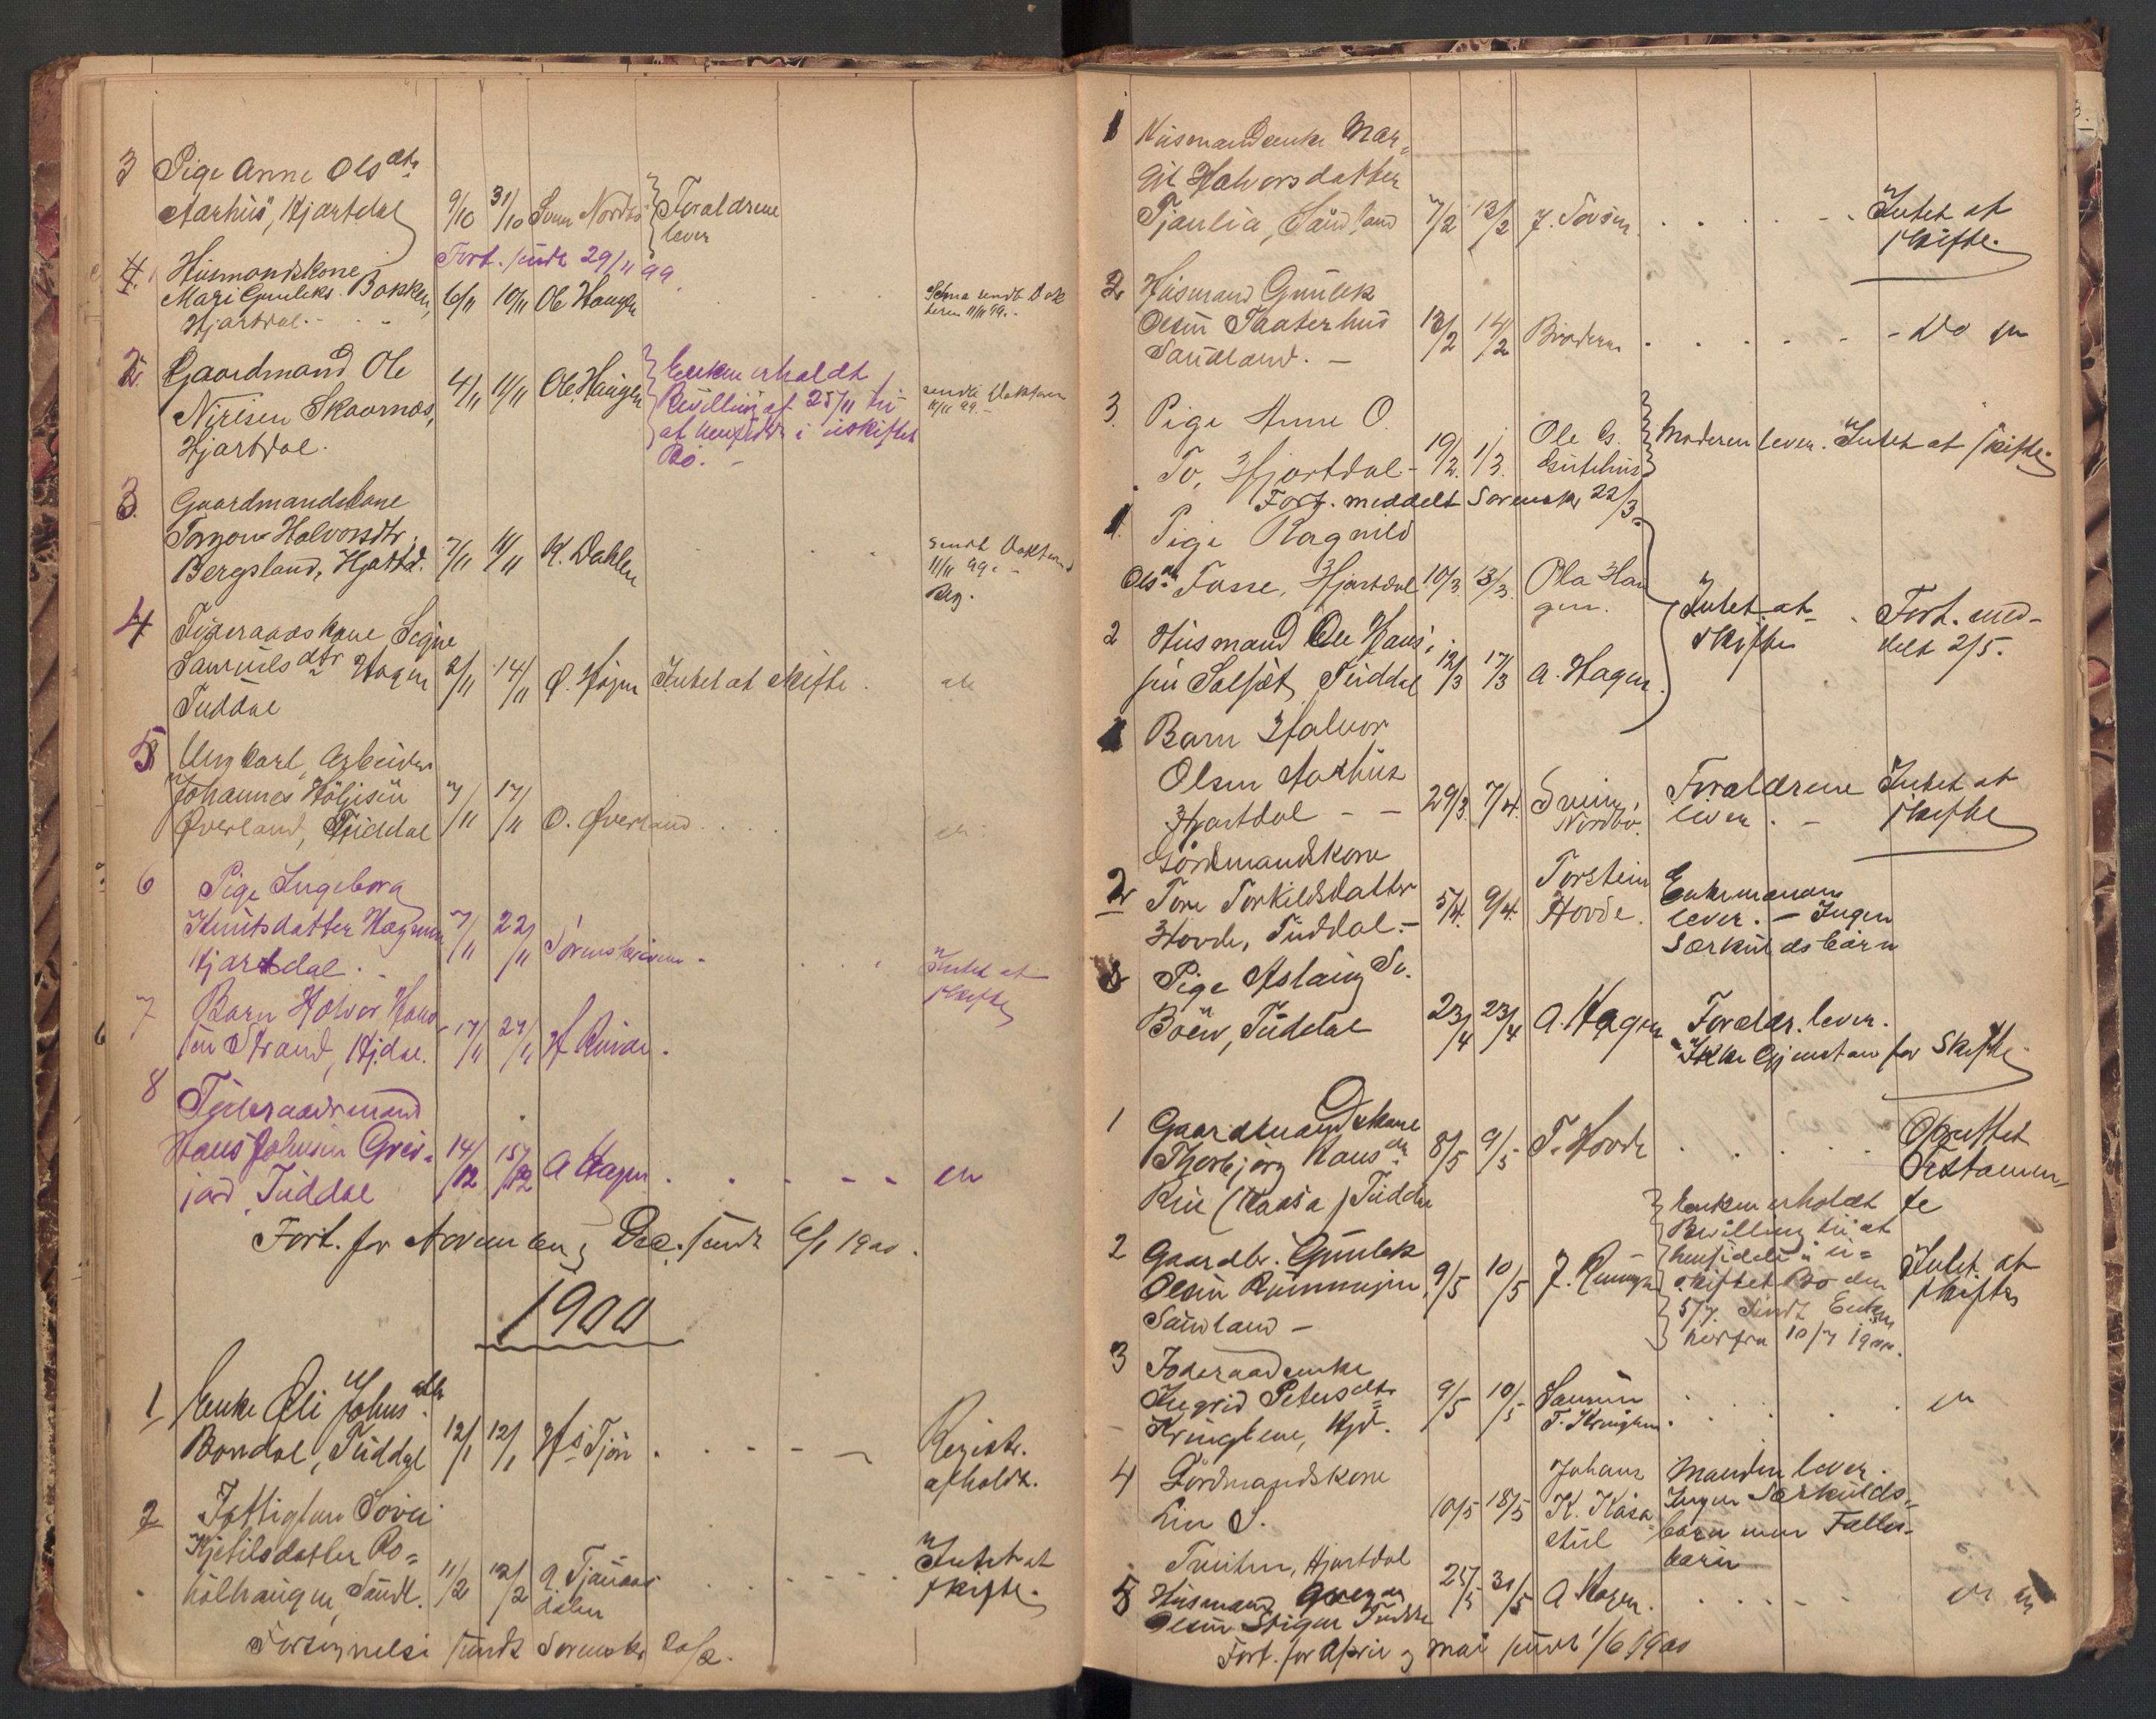 3 Pige Anne Olsdtr
Aarhus, Hjartdal 9/10 31/10 Svein Nordbø Foraldrene
lever
Fort. sendt 29/11 99.
4. Husmandskone
Mari Gunleks. Bakken, 6/11 10/11 Ole Haugen
Hjartdal.
2. Gaardmand Ole
Nirisen Skaarnas, 4/11 11/11 Ole Haugen Enken erholdt
Hjartdal. Bevilling af 25/11 til
at hensidde i uskiftet
Bo. -
sendt Doktoren
11/11 99. -
3. Gaardmandskone
Torgon Halvorsdtr.
Bergsland, Hjartd. 7/11 11/11 K. Dahlen
sendt Doktoren
11/11 99. -
Reg.
4 Føderaadskone Signe
Samuelsdtr Hagen 2/11 14/11 Ø. Høgen Intet at skifte.
Tuddal
5 Ungkarl, Arbeider
Johannes Høljesen 7/11 17/11 O. Øverland
Øverland, Tuddal
6 Pige Ingeborg
Knutsdatter Hagen 7/11 22/11 Sorenskriveren
Hjartdal. Intet at
skifte
7 Barn Halvor Hans
sen Strand, Hjdal. 17/11 27/11
8 Føderaadsmand
Hans Johnsen Grøs-
jord, Tuddal 14/12 15/12 A Hagen
Fort. for November og Dec. sendt 6/1 1900.
1900
1 Enke Øli Johnsdtr.
Bondal, Tuddal 12/1 12/1 Hs Tjøn Registr.
afholdt.
2 Fattiglem Sovei
Kjetilsdatter Ro=
holthaugen, Saudl. 11/2 12/2 Intet at
skifte.
Fortegnelse sendt Sorenskr 20/2.
1 Husmandsenke Mar=
git Halvorsdatter
Tjønlia, Saudland 7/2 13/2 J. Sovsen Intet at
skifte.
2 Husmand Gunlek
Olsen Taaterhus 13/2 14/2 Broderen Do
Saudland. -
3. Pige Anne O.
To, Hjartdal - 19/2. 1/3. Ole Gs. Moderen lever. Intet at skifte.
Fort. meddelt Sorenskr 22/3.
1. Pige Ragnild
Olsdtr Fosse, Hjartdal 10/3. 13/3. Ola Hau
gen. Intet at
skifte Fort. med-
delt 2/5.
2 Husmand Ole Hans-
sen Solsæt, Tuddal 12/3 17/3 A. Hagen.
1 Barn Halvor
Olsen Aarhus
Hjartdal - - 29/3. 7/4. Svein Nordbø. Foraldrene
lever. - Intet at
skifte
2 Gårdmandskone
Tore Torkildsdatter
Hovde, Tuddal. - 5/4. 9/4. Torstein
Hovde. Enkemanden
lever. - Ingen
Særkuldsbarn
3 Pige Aslaug Sv.
Bøen, Tuddal 23/4 23/4 A. Hagen Foraldr. lever.
Ikke Gjenstan for Skifte.
1 Gaardmandskone
Thorbjørg Hansdtr
Rui (Kaasa) Tuddal 8/5 9/5 T. Hovde Oprettet
Testamen=
te
2 Gaardbr. Gunlek
Olsen Rommegen, 9/5 10/5
Saudland -
Enken erholdt
Bevilling til at
hensidde i u=
skiftet Bo den
5/7. Sendt Enken
herfra 10/7 1900.
Intet at
skifte
3 Føderaadsenke
Ingrid Petersdtr
Kringlene, Hjd. 9/5 10/5
4 Gårdmandskone
Liv S.
Trøiten, Hjartdal 10/5 18/5 Johans
K. Kåsa
stul Manden lever.
Ingen Særkulds-
børn men Fælles-
børn
5 Husmand Gregar
Olsen Stigen Tuddal 25/5 31/5 A Hagen.
Fort. for April og Mai sendt 1/6 1900